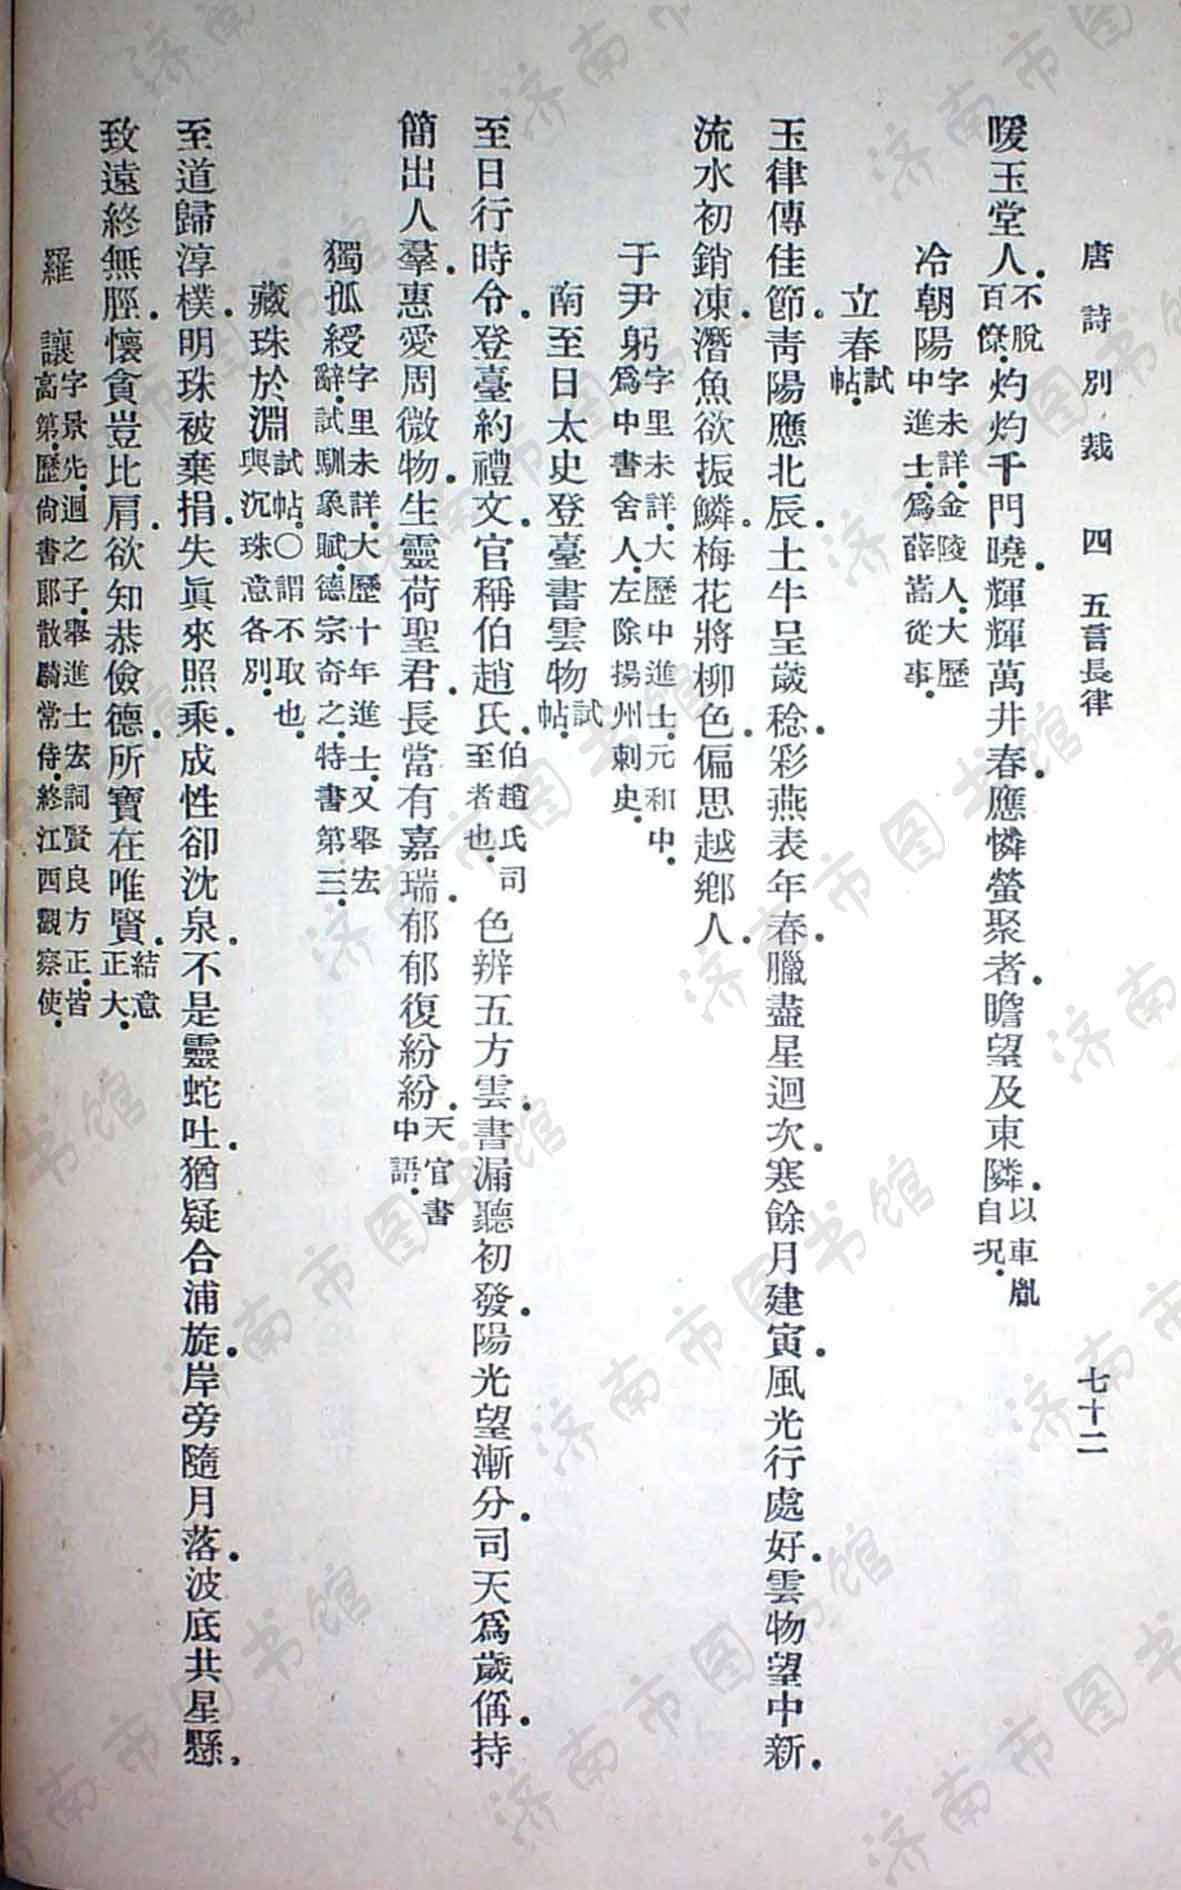 唐詩別裁　四　五言長律　七十二
暖玉堂人．不脫百僚．灼灼千門曉．輝輝萬井春．應憐螢聚者．瞻望及東隣．以車胤自況．
冷朝陽字未詳．金陵人．大歷中進士．爲薛嵩從事．
立春試帖．
玉律傳佳節．靑陽應北辰．土牛呈歲稔．彩燕表年春．臘盡星迴次．寒餘月建寅．風光行處好．雲物望中新．
流水初銷凍．潛魚欲振鱗．梅花將柳色．偏思越鄉人．
于尹躬字里未詳．大歷中進士．元和中．爲中書舍人．左除揚州刺史．
南至日太史登臺書雲物試帖．
至日行時令．登臺約禮文．官稱伯趙氏．伯趙氏司至者也．色辨五方雲．書漏聽初發．陽光望漸分．司天爲歲備．持
簡出人羣．惠愛周微物．生靈荷聖君．長當有嘉瑞．郁郁復紛紛．天官書中語．
獨孤綬字里未詳．大歷十年進士．又舉宏辭．試馴象賦．德宗奇之．特書第三．
藏珠於淵試帖．○謂不取也．與沉珠意各別．
至道歸淳樸．明珠被棄捐．失眞來照乘．成性卻沈泉．不是靈蛇吐．猶疑合浦旋．岸旁隨月落．波底共星懸．
致遠終無脛．懷貪豈比肩．欲知恭儉德．所寶在唯賢．結意正大．
羅　讓字景先．迴之子．舉進士宏詞賢良方正．皆高第．歷尚書郎散騎常侍．終江西觀察使．
济南市图书馆